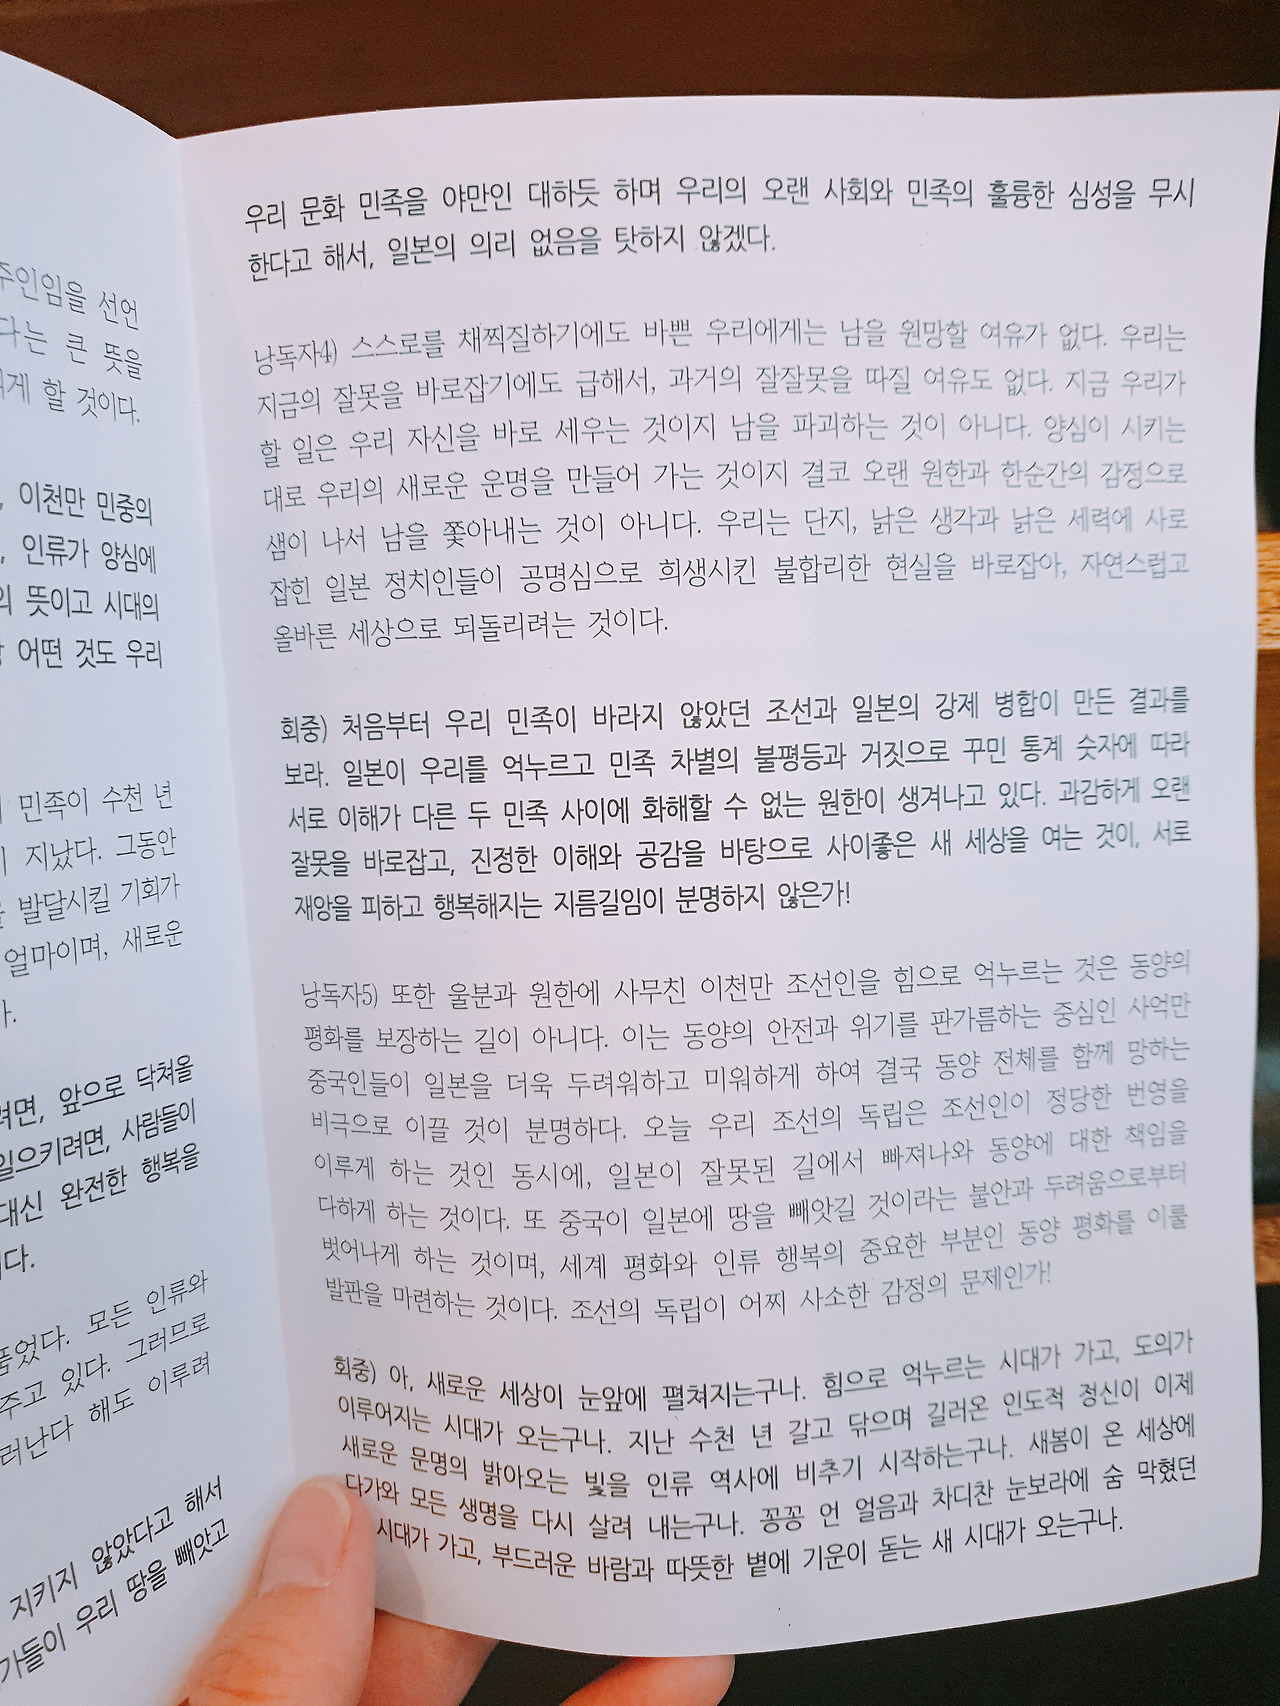 주인임을 선언
다는 큰 뜻을
게 할 것이다.
이천만 민중의
인류가 양심에
뜻이고 시대의
어떤 것도 우리
민족이 수천 년
지났다. 그동안
발달시킬 기회가
얼마이며, 새로운
려면, 앞으로 닥쳐올
일으키려면, 사람들이
대신 완전한 행복을
다.
품었다. 모든 인류와
주고 있다. 그러므로
러난다 해도 이루려
지키지 않았다고 해서
가들이 우리 땅을 빼앗고
우리 문화 민족을 야만인 대하듯 하며 우리의 오랜 사회와 민족의 훌륭한 심성을 무시
한다고 해서, 일본의 의리 없음을 탓하지 않겠다.
낭독자4) 스스로를 채찍질하기에도 바쁜 우리에게는 남을 원망할 여유가 없다. 우리는
지금의 잘못을 바로잡기에도 급해서, 과거의 잘잘못을 따질 여유도 없다. 지금 우리가
할 일은 우리 자신을 바로 세우는 것이지 남을 파괴하는 것이 아니다. 양심이 시키는
대로 우리의 새로운 운명을 만들어 가는 것이지 결코 오랜 원한과 한순간의 감정으로
샘이 나서 남을 쫓아내는 것이 아니다. 우리는 단지, 낡은 생각과 낡은 세력에 사로
잡힌 일본 정치인들이 공명심으로 희생시킨 불합리한 현실을 바로잡아, 자연스럽고
올바른 세상으로 되돌리려는 것이다.
회중) 처음부터 우리 민족이 바라지 않았던 조선과 일본의 강제 병합이 만든 결과를
보라. 일본이 우리를 억누르고 민족 차별의 불평등과 거짓으로 꾸민 통계 숫자에 따라
서로 이해가 다른 두 민족 사이에 화해할 수 없는 원한이 생겨나고 있다. 과감하게 오랜
잘못을 바로잡고, 진정한 이해와 공감을 바탕으로 사이좋은 새 세상을 여는 것이, 서로
재앙을 피하고 행복해지는 지름길임이 분명하지 않은가!
낭독자5) 또한 울분과 원한에 사무친 이천만 조선인을 힘으로 억누르는 것은 동양의
평화를 보장하는 길이 아니다. 이는 동양의 안전과 위기를 판가름하는 중심인 사억만
중국인들이 일본을 더욱 두려워하고 미워하게 하여 결국 동양 전체를 함께 망하는
비극으로 이끌 것이 분명하다. 오늘 우리 조선의 독립은 조선인이 정당한 번영을
이루게 하는 것인 동시에, 일본이 잘못된 길에서 빠져나와 동양에 대한 책임을
다하게 하는 것이다. 또 중국이 일본에 땅을 빼앗길 것이라는 불안과 두려움으로부터
벗어나게 하는 것이며, 세계 평화와 인류 행복의 중요한 부분인 동양 평화를 이룰
발판을 마련하는 것이다. 조선의 독립이 어찌 사소한 감정의 문제인가!
회중) 아, 새로운 세상이 눈앞에 펼쳐지는구나. 힘으로 억누르는 시대가 가고, 도의가
이루어지는 시대가 오는구나. 지난 수천 년 갈고 닦으며 길러온 인도적 정신이 이제
새로운 문명의 밝아오는 빛을 인류 역사에 비추기 시작하는구나. 새봄이 온 세상에
다가와 모든 생명을 다시 살려 내는구나. 꽁꽁 언 얼음과 차디찬 눈보라에 숨 막혔던
시대가 가고, 부드러운 바람과 따뜻한 볕에 기운이 돋는 새 시대가 오는구나.